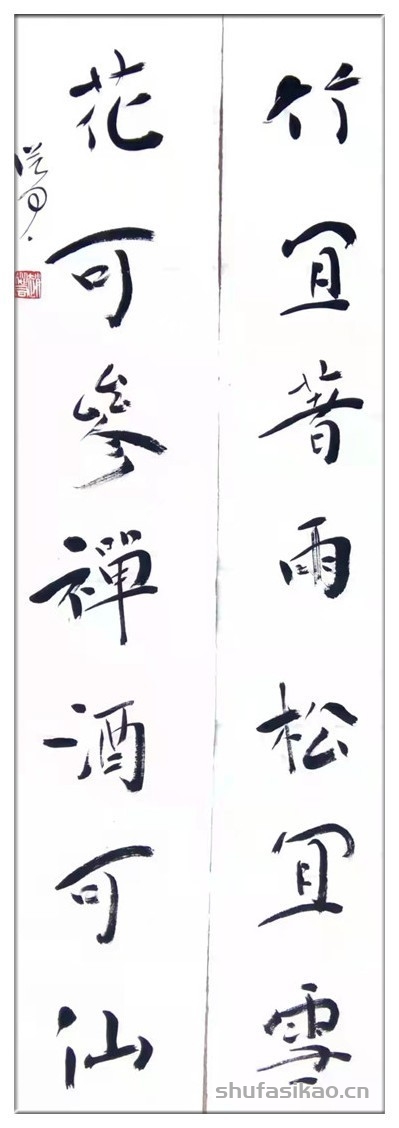 竹宜著雨松宜雪
花可參禪酒可仙
shufasikao.cn